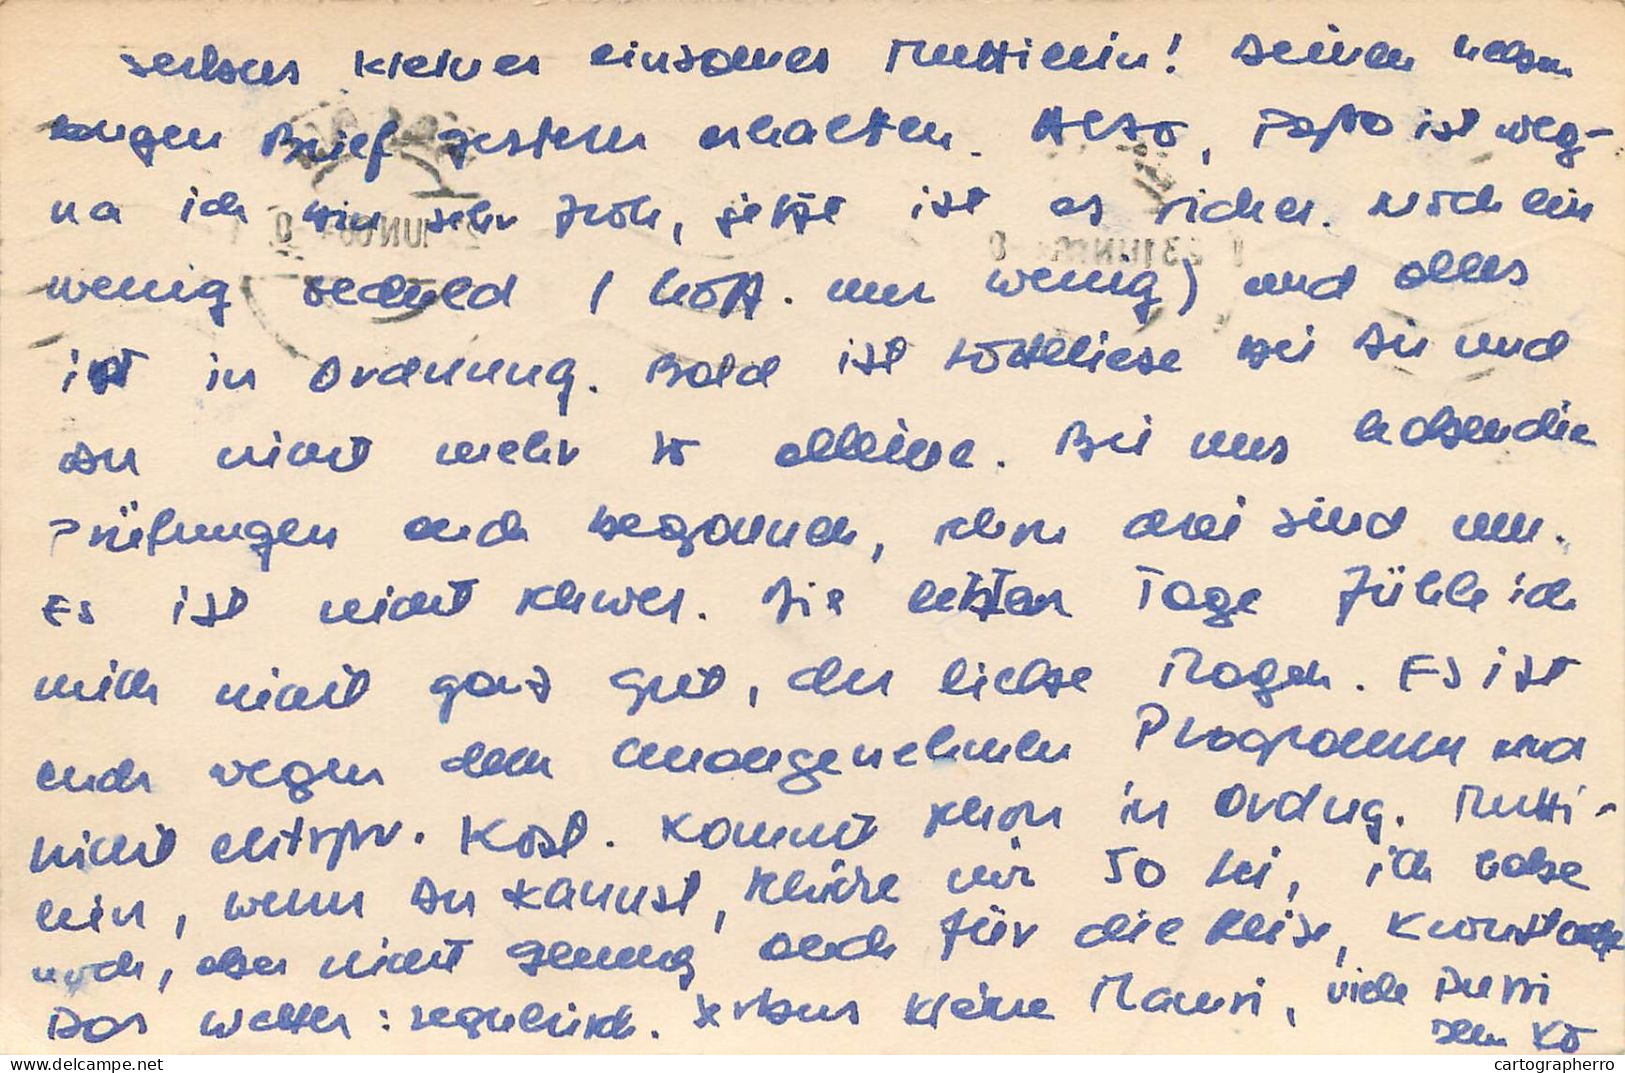 Serbus kleines einsames Muttilein! Deinen lieben
langen Brief gestern erhalten. Also, Papo ist weg-
na ich bin sehr froh, jetzt ist es sicher. Noch ein
wenig Geduld (hoff. nur wenig) und alles
ist in Ordnung. Bald ist Lotteliese bei Dir und
Du nicht mehr so alleine. Bei uns haben die
Prüfungen auch begonnen, schon drei sind um.
Es ist nicht schwer. Die letzten Tage fühle ich
mich nicht ganz gut, der liebe Magen. Es ist
auch wegen dem unangenehmen Programm und
nicht entspr. Kost. Kommt schon in Ordng. Mutti-
lein, wenn Du kannst, schicke mir 50 Lei, ich habe
noch, aber nicht genung auch für die Reise,
Das Wetter: regnerisch. Serbus kleine Mausi, viele Pussi
Dein
cartographerro